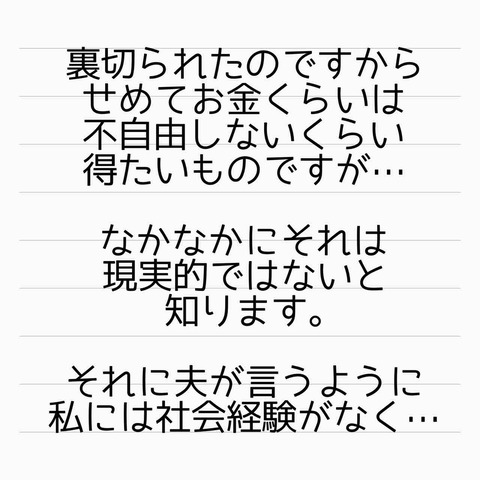 裏切られたのですから
せめてお金くらいは
不自由しないくらい
得たいものですが…
なかなかにそれは
現実的ではないと
知ります。
それに夫が言うように
私には社会経験がなく…